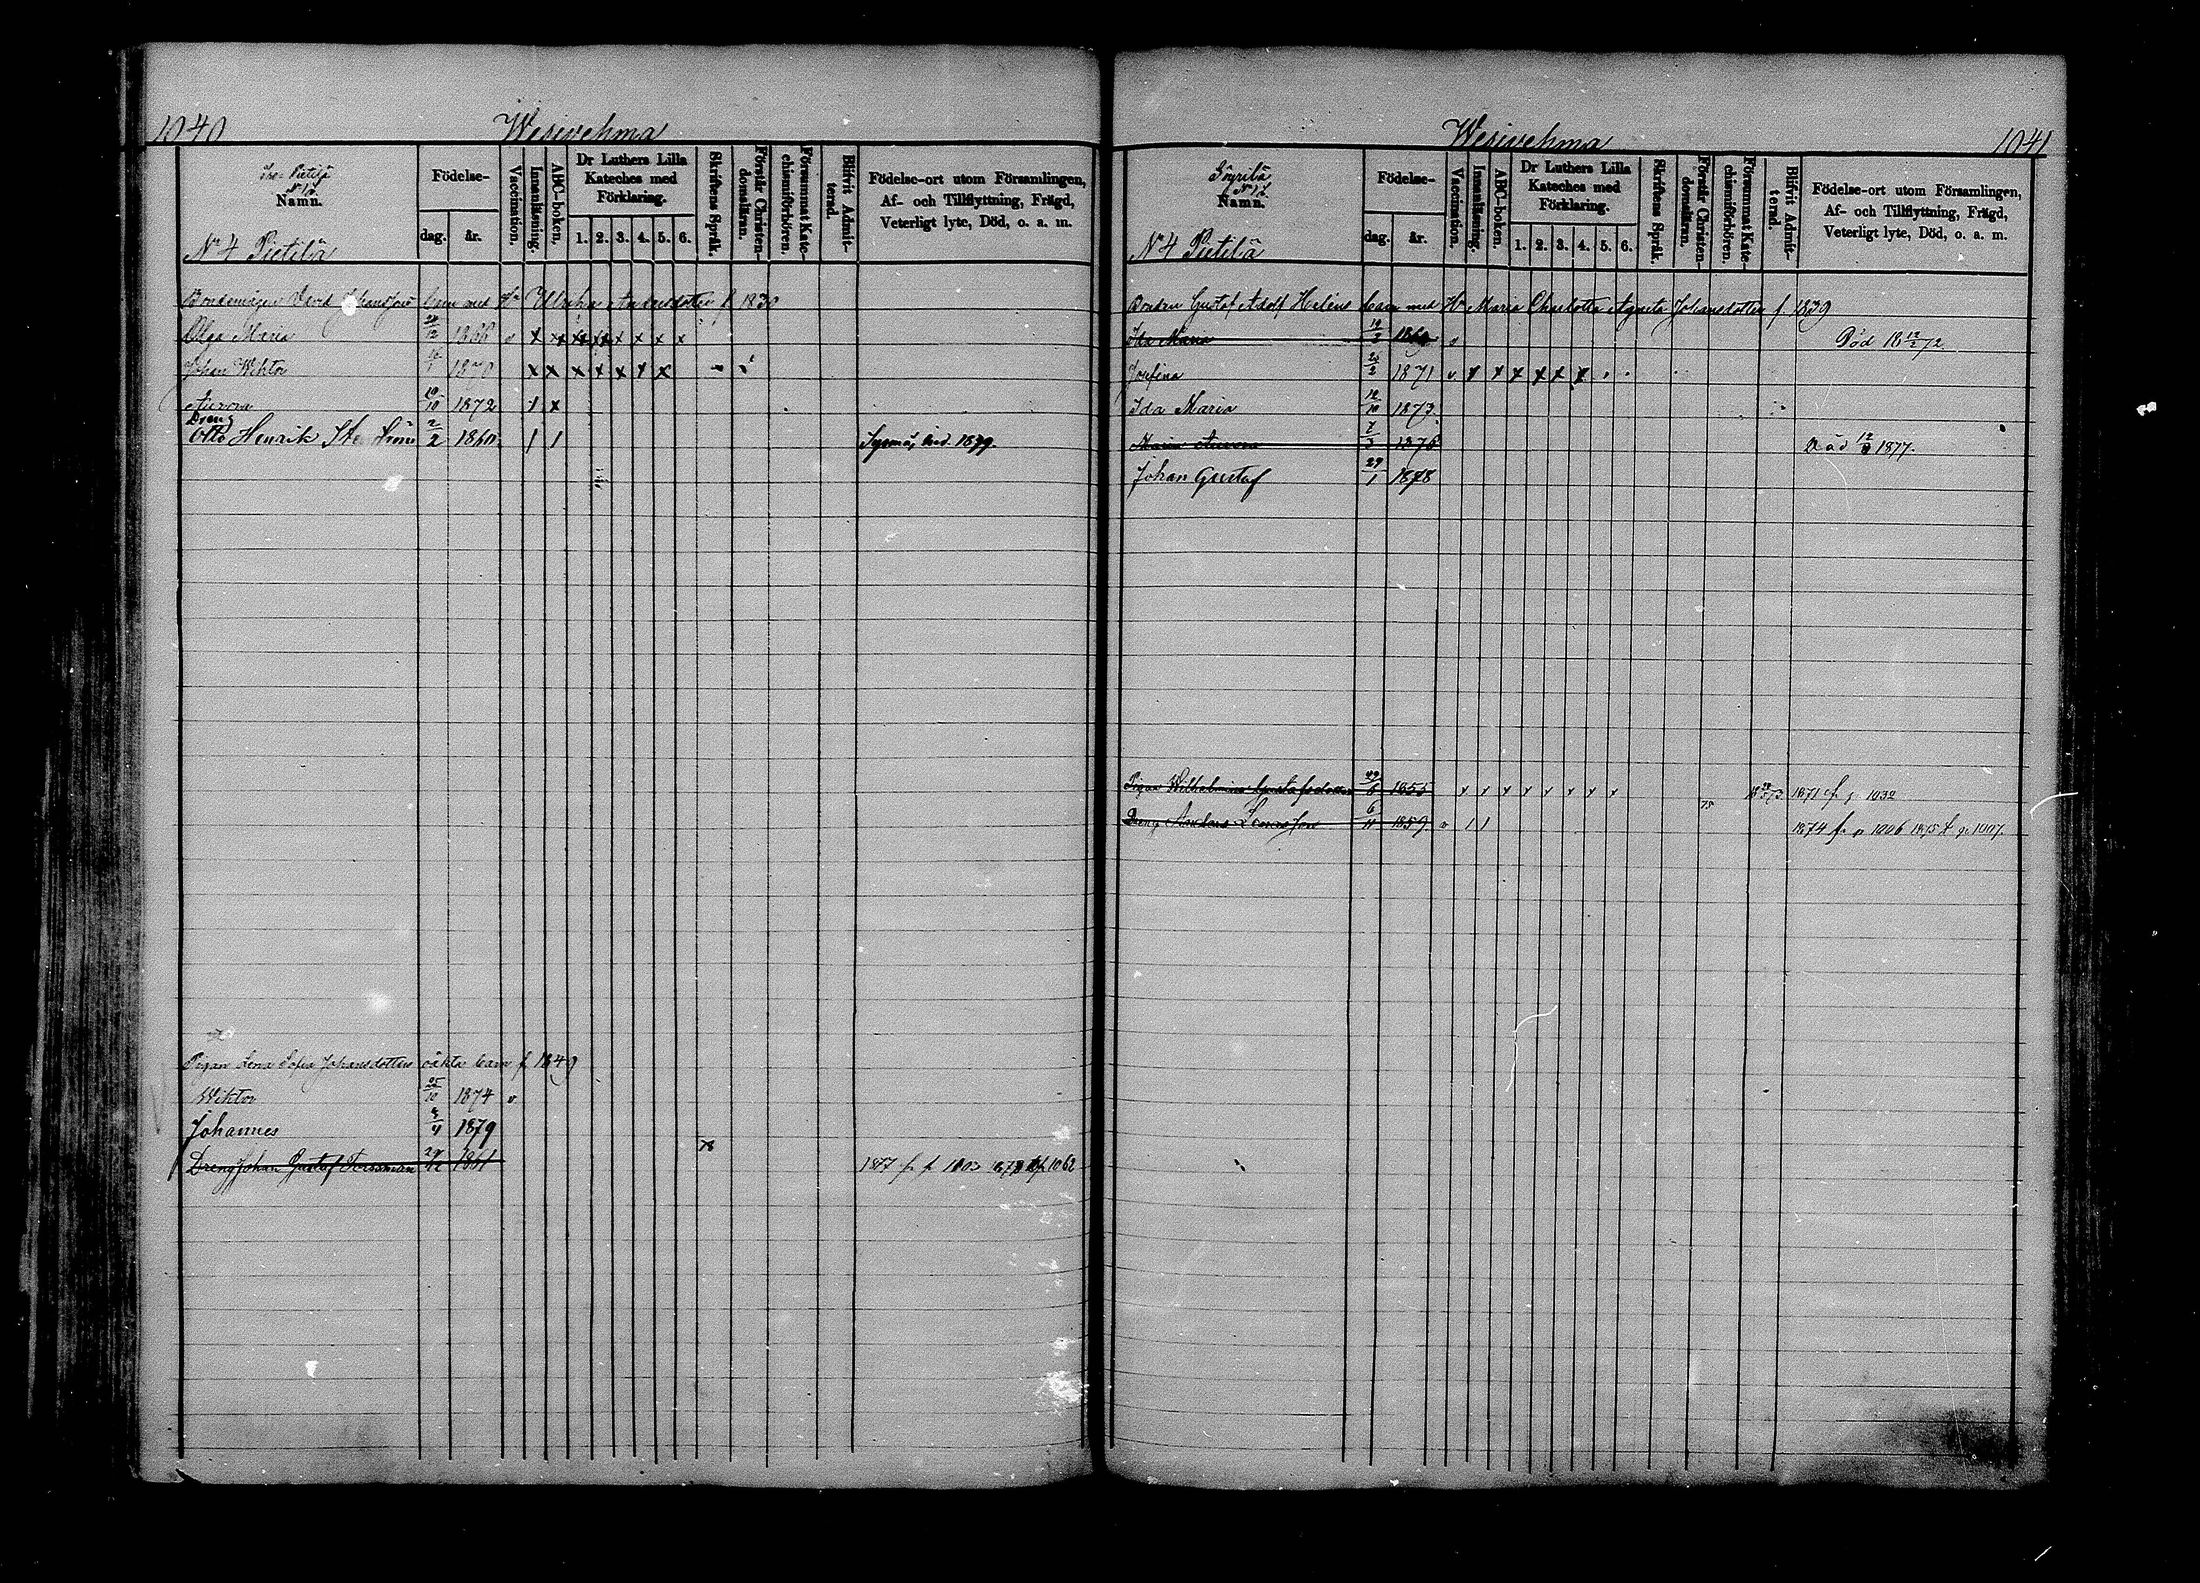 1040 Wesivehma
Iso-Pietilä
N:o 1/2
Namn.
Födelse-
dag. år.
Vaccination.
Innanläsning.
ABC-boken.
Dr Luthers Lilla
Kateches med
Förklaring.
1. 2. 3. 4. 5. 6.
Skriftens Språk.
Förstår Christen-
domsläran.
Försummat Kate-
chismiförhören.
Blifvit Admit-
terad.
Födelse-ort utom Församlingen,
Af- och Tillflyttning, Frägd,
Veterligt lyte, Död, o. a. m.
No 4 Pietilä
Bondemågen David Johansson barn med Hu Ulrika Andersdotter f 1830
Olga Maria 12 1866 v x xx xx xx x x x x
Johan Wiktor 1 1870 x x x x x x x
Aurora 10 1872 1 x
Dreng
Otto Henrik 2/2 1860 1 1 Sysmä, 1879.
Pigan Lena Sofia Johansdotters oäkta barn f 1849
Wiktor 25/10 1874 v
Johannes 1879
78
Dreng Johan Gustaf 1861 1877 fr p 1003 1878 t p 1062
Wesivehma 1041
Pöyrilä
N:o 1/2
Namn.
Födelse-
dag. år.
Vaccination.
Innanläsning.
ABC-boken.
Dr Luthers Lilla
Kateches med
Förklaring.
1. 2. 3. 4. 5. 6.
Skriftens Språk.
Förstår Christen-
domsläran.
Försummat Kate-
chismiförhören.
Blifvit Admit-
terad.
Födelse-ort utom Församlingen,
Af- och Tillflyttning, Frägd,
Veterligt lyte, Död, o. a. m.
No 4 Pietilä
Bonden Gustaf Adolf Helenius barn med Hu Maria Charlotta Agneta Johansdotter f 1839
Ida Maria 19/3 1869 v Död 18 12/2 72
Josefina 20/2 1871 v x x x x x x
Ida Maria 12/10 1873
Maria Aurora 7/3 1876 Död 12/3 1877.
Johan Gustaf 29/1 1878
Pigan Wilhelmina Gustafsdotter 1855 x x x x x x x x 75 1871 fr p 1032
Dreng Anders 6/11 1859 v 1 1 1874 fr p 1006 1875 t p 1007